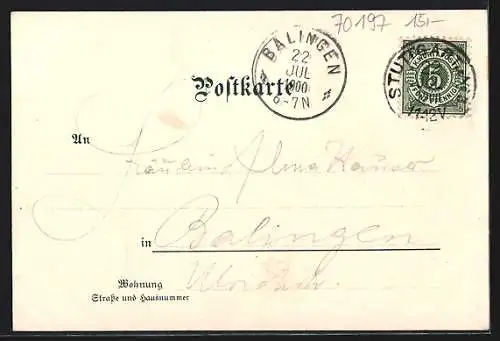 70197 15,-
BALINGEN
22
JUL
900
6-7N
STUTTGA
11-12V
5
Postkarte
An
Fräulein Anna Hauser
in Balingen
Wohnung
Straße und Hausnummer